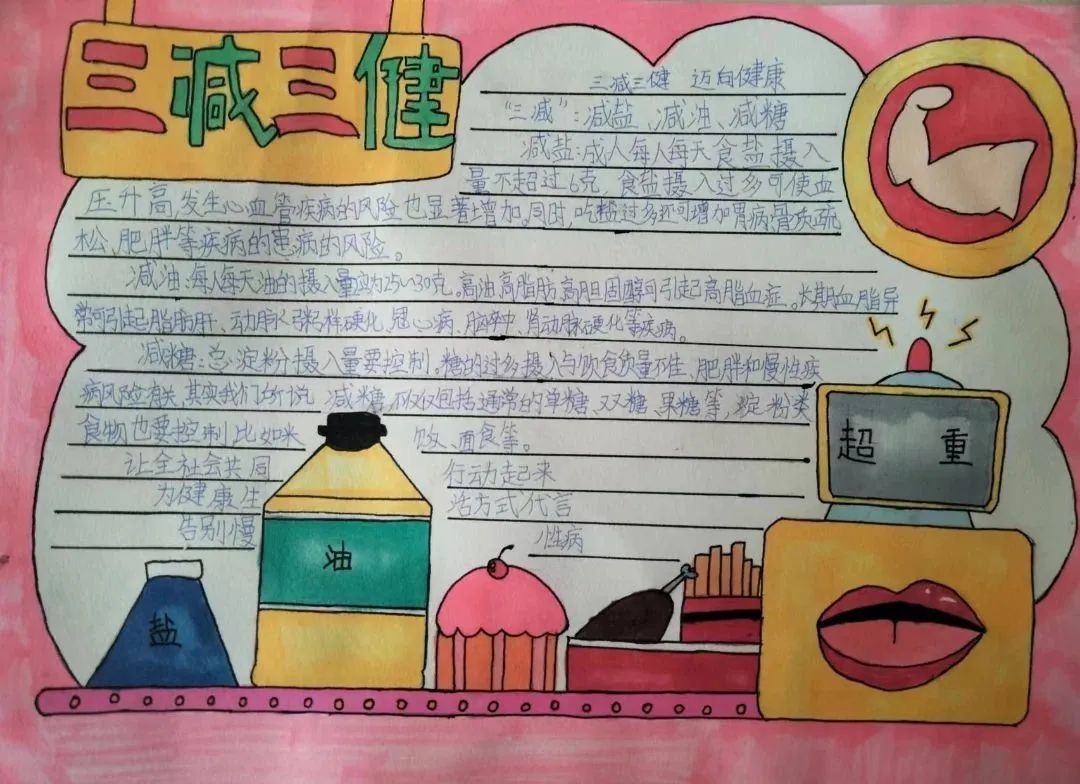 三减三健
三减三健 迈向健康
"三减":减盐、减油、减糖
减盐:成人每人每天食盐摄入
量不超过6克,食盐摄入过多可使血
压升高,发生心血管疾病的风险也显著增加。同时,吃盐过多还可增加胃病,骨质疏
松、肥胖等疾病的患病的风险。
减油:每人每天油的摄入量应为25~30克。高油高脂肪,高胆固醇可引起高脂血症。长期血脂异
常可引起脂肪肝、动脉粥样硬化,冠心病、脑卒中、肾动脉硬化等疾病。
减糖:总淀粉摄入量要控制。糖的过多摄入与饮食质量不佳、肥胖和慢性疾
病风险有关。其实我们所说 减糖不仅仅包括通常的单糖、双糖、果糖等,淀粉类
食物也要控制比如米 饭、面食等。
让全社会共同 行动起来
为健康生 活方式代言
告别慢 性病
超 重
油
盐